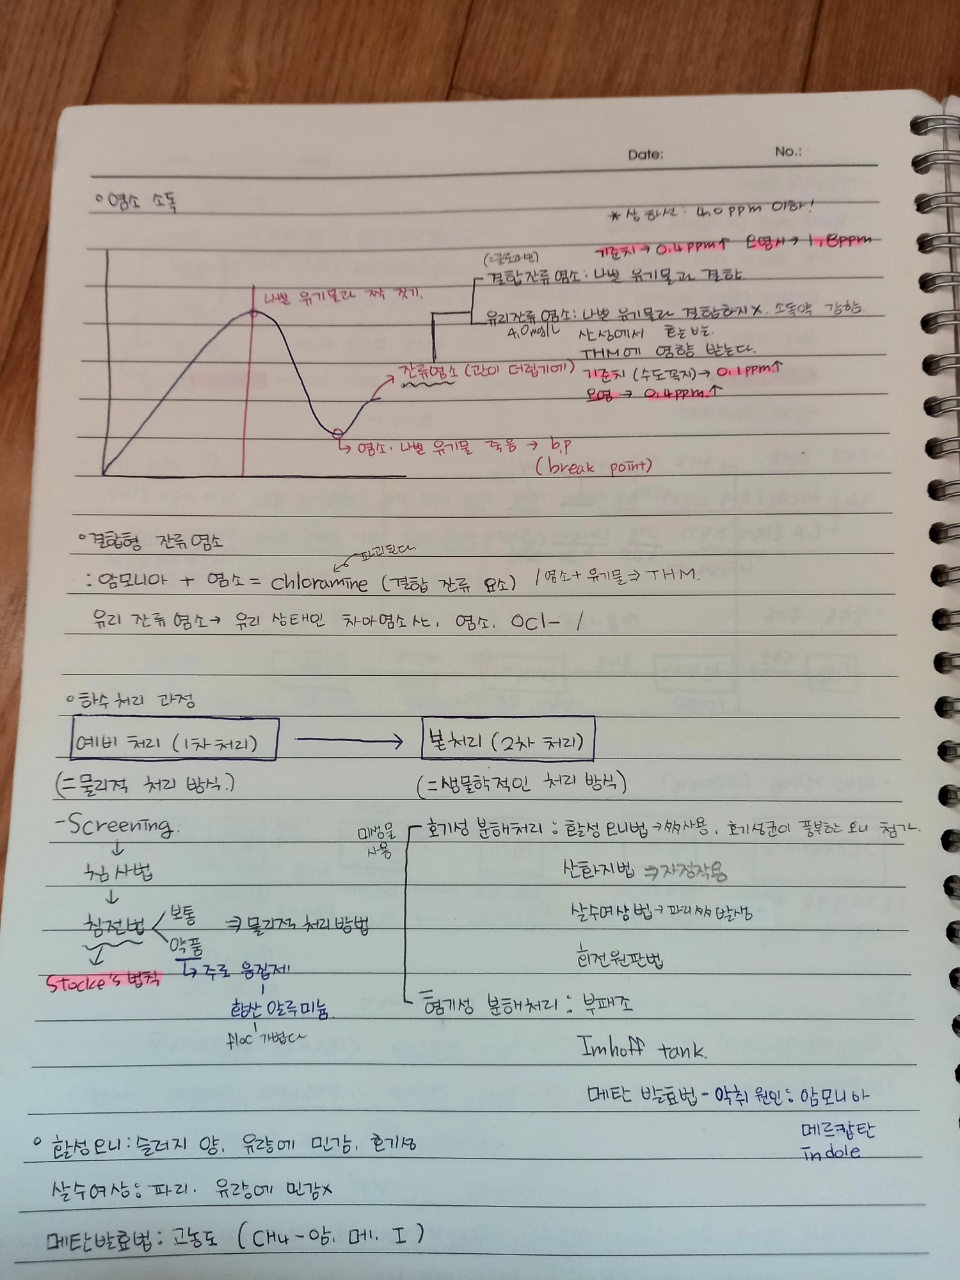 Date: No.:
◦염소 소독
*상한선: 4.0ppm 이하!
기준치→0.4ppm↑ 오염시→1.8ppm
결합잔류염소: 나쁜 유기물과 결합
나쁜 유기물과 짝 짓기.
유리잔류염소: 나쁜 유기물과 결합하지X. 소독약 강함
4.0mg/L
THM에 영향 받는다.
잔류염소 (관이 더럽기에)
기준치 (수도꼭지)→0.1ppm↑
오염→0.4ppm↑
↳염소·나쁜 유기물 죽음→b.p
(break point)
◦결합형 잔류염소
파괴된다
:암모니아 + 염소 = chloramine (결합 잔류 요소) / 염소+유기물⇒THM.
유리 잔류염소→유리 상태인 차아염소산, 염소, OCl- /
◦하수처리 과정
예비 처리 (1차처리) → 본처리 (2차 처리)
(=물리적 처리 방식.) (=생물학적인 처리 방식)
-Screening.
미생물 사용
호기성 분해처리: 활성오니법→많이사용, 호기성균이 풍부한 오니 첨가.
↓
침사법
산화지법⇒자정작용
↓
살수여상법→파리많이발생
침전법 보통 약품 ⇒물리적 처리방법
회전원판법
Stocke's법칙
↳주로 응집제
혐기성 분해처리: 부패조
황산 알루미늄.
floc
Imhoff tank.
메탄 발효법-악취 원인: 암모니아
메르캅탄
indole
◦활성오니: 슬러지 양, 유량에 민감, 호기성
살수여상: 파리. 유량에 민감x
메탄발효법: 고농도 (CH4-암, 메, I)